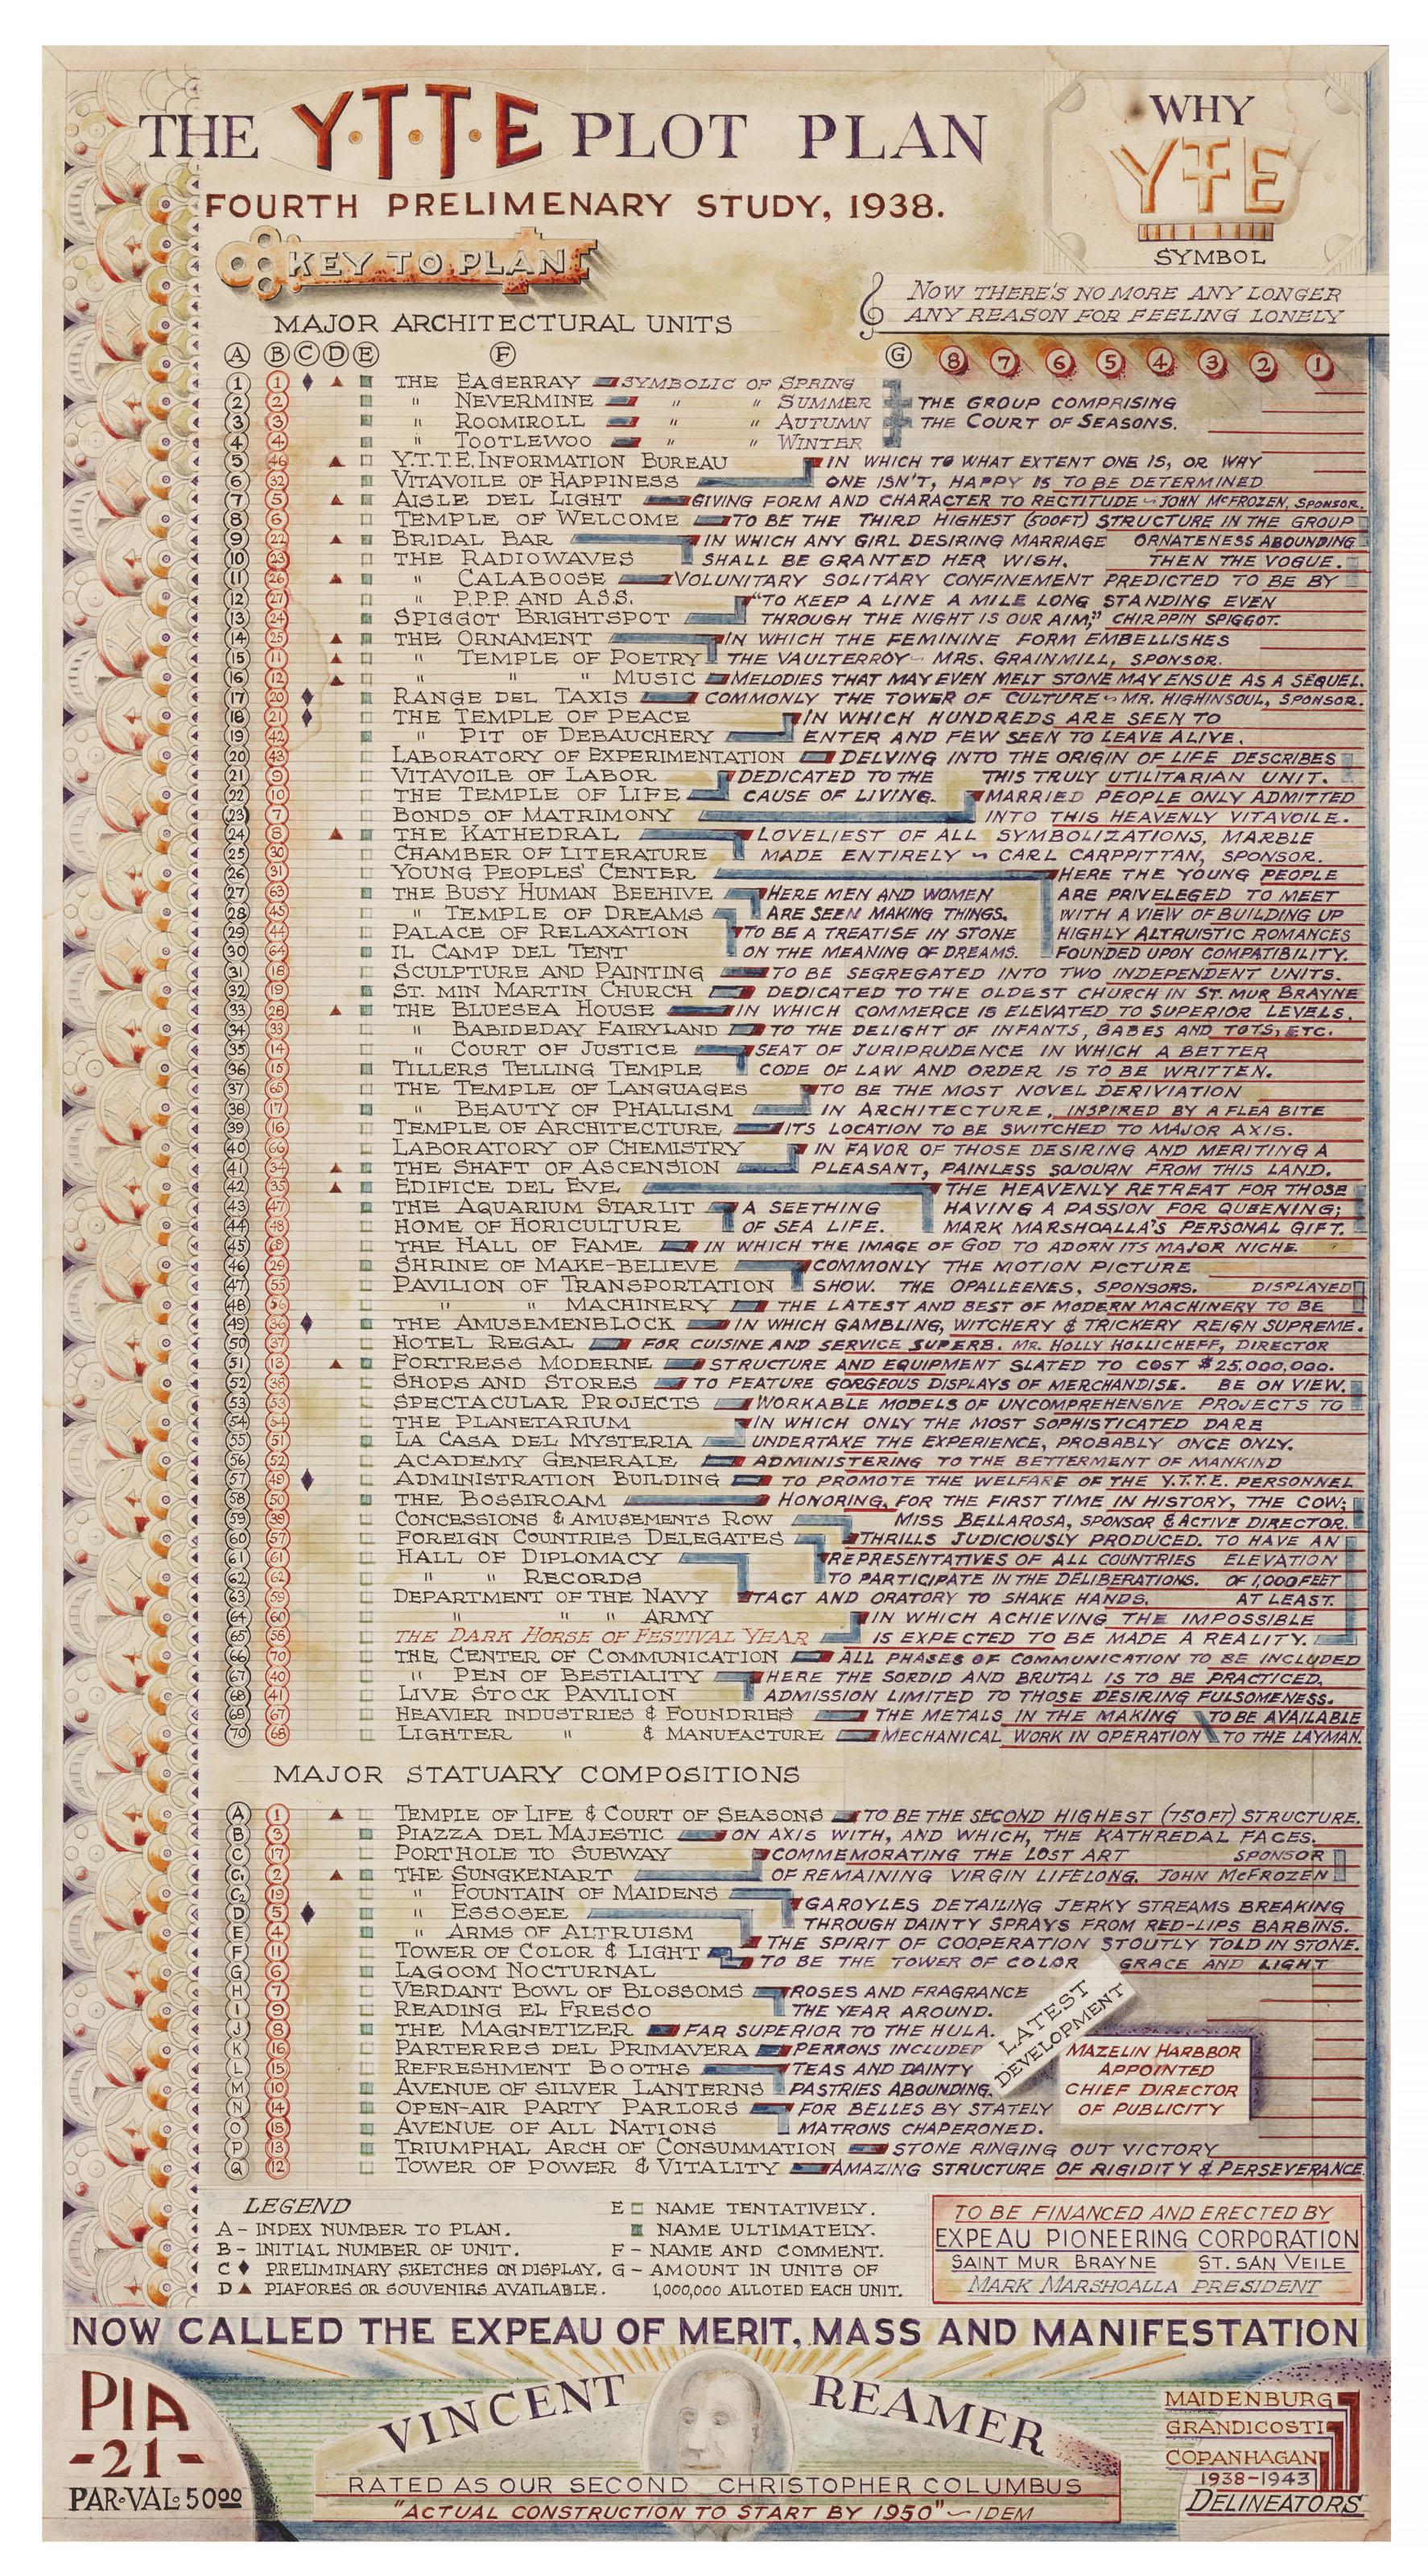 THE Y·T·T·E PLOT PLAN
FOURTH PRELIMENARY STUDY, 1938.
WHY
YTTE
SYMBOL
KEY TO PLAN
NOW THERE'S NO MORE ANY LONGER
ANY REASON FOR FEELING LONELY
MAJOR ARCHITECTURAL UNITS
A B C D E F G 8 7 6 5 4 3 2 1
1 1 THE EAGERRAY SYMBOLIC OF SPRING
2 2 " NEVERMINE " " SUMMER THE GROUP COMPRISING
3 3 " ROOMIROLL " " AUTUMN THE COURT OF SEASONS.
4 4 " TOOTLEWOO " " WINTER
5 46 Y.T.T.E. INFORMATION BUREAU IN WHICH TO WHAT EXTENT ONE IS, OR WHY
6 32 VITAVOILE OF HAPPINESS ONE ISN'T, HAPPY IS TO BE DETERMINED
7 5 AISLE DEL LIGHT GIVING FORM AND CHARACTER TO RECTITUDE ~ JOHN McFROZEN, SPONSOR.
8 6 TEMPLE OF WELCOME TO BE THE THIRD HIGHEST (500FT) STRUCTURE IN THE GROUP
9 22 BRIDAL BAR IN WHICH ANY GIRL DESIRING MARRIAGE ORNATENESS ABOUNDING
10 23 THE RADIOWAVES SHALL BE GRANTED HER WISH. THEN THE VOGUE.
11 26 " CALABOOSE VOLUNITARY SOLITARY CONFINEMENT PREDICTED TO BE BY
12 27 " P.P.P. AND A.S.S. "TO KEEP A LINE A MILE LONG STANDING EVEN
13 24 SPIGGOT BRIGHTSPOT THROUGH THE NIGHT IS OUR AIM," CHIRPPIN SPIGGOT.
14 25 THE ORNAMENT IN WHICH THE FEMININE FORM EMBELLISHES
15 11 " TEMPLE OF POETRY THE VAULTERROY ~ MRS. GRAINMILL, SPONSOR.
16 12 " " " MUSIC MELODIES THAT MAY EVEN MELT STONE MAY ENSUE AS A SEQUEL.
17 20 RANGE DEL TAXIS COMMONLY THE TOWER OF CULTURE ~ MR. HIGHINSOUL, SPONSOR.
18 21 THE TEMPLE OF PEACE IN WHICH HUNDREDS ARE SEEN TO
19 42 " PIT OF DEBAUCHERY ENTER AND FEW SEEN TO LEAVE ALIVE.
20 43 LABORATORY OF EXPERIMENTATION DELVING INTO THE ORIGIN OF LIFE DESCRIBES
21 9 VITAVOILE OF LABOR DEDICATED TO THE THIS TRULY UTILITARIAN UNIT.
22 10 THE TEMPLE OF LIFE CAUSE OF LIVING. MARRIED PEOPLE ONLY ADMITTED
23 7 BONDS OF MATRIMONY INTO THIS HEAVENLY VITAVOILE.
24 8 THE KATHEDRAL LOVELIEST OF ALL SYMBOLIZATIONS, MARBLE
25 30 CHAMBER OF LITERATURE MADE ENTIRELY ~ CARL CARPPITTAN, SPONSOR.
26 31 YOUNG PEOPLES' CENTER HERE THE YOUNG PEOPLE
27 63 THE BUSY HUMAN BEEHIVE HERE MEN AND WOMEN ARE PRIVELEGED TO MEET
28 45 " TEMPLE OF DREAMS ARE SEEN MAKING THINGS. WITH A VIEW OF BUILDING UP
29 44 PALACE OF RELAXATION TO BE A TREATISE IN STONE HIGHLY ALTRUISTIC ROMANCES
30 64 IL CAMP DEL TENT ON THE MEANING OF DREAMS. FOUNDED UPON COMPATIBILITY.
31 18 SCULPTURE AND PAINTING TO BE SEGREGATED INTO TWO INDEPENDENT UNITS.
32 19 ST. MIN MARTIN CHURCH DEDICATED TO THE OLDEST CHURCH IN ST. MUR BRAYNE
33 28 THE BLUESEA HOUSE IN WHICH COMMERCE IS ELEVATED TO SUPERIOR LEVELS.
34 33 " BABIDEDAY FAIRYLAND TO THE DELIGHT OF INFANTS, BABES AND TOTS, ETC.
35 14 " COURT OF JUSTICE SEAT OF JURIPRUDENCE IN WHICH A BETTER
36 15 TILLERS TELLING TEMPLE CODE OF LAW AND ORDER IS TO BE WRITTEN.
37 65 THE TEMPLE OF LANGUAGES TO BE THE MOST NOVEL DERIVIATION
38 17 " BEAUTY OF PHALLISM IN ARCHITECTURE, INSPIRED BY A FLEA BITE
39 16 TEMPLE OF ARCHITECTURE ITS LOCATION TO BE SWITCHED TO MAJOR AXIS.
40 66 LABORATORY OF CHEMISTRY IN FAVOR OF THOSE DESIRING AND MERITING A
41 34 THE SHAFT OF ASCENSION PLEASANT, PAINLESS SOJOURN FROM THIS LAND.
42 35 EDIFICE DEL EVE THE HEAVENLY RETREAT FOR THOSE
43 47 THE AQUARIUM STARLIT A SEETHING HAVING A PASSION FOR QUEENING;
44 48 HOME OF HORICULTURE OF SEA LIFE. MARK MARSHOALLA'S PERSONAL GIFT.
45 69 THE HALL OF FAME IN WHICH THE IMAGE OF GOD TO ADORN ITS MAJOR NICHE
46 29 SHRINE OF MAKE-BELIEVE COMMONLY THE MOTION PICTURE
47 55 PAVILION OF TRANSPORTATION SHOW. THE OPALLEENES, SPONSORS. DISPLAYED
48 56 " " MACHINERY THE LATEST AND BEST OF MODERN MACHINERY TO BE
49 36 THE AMUSEMENBLOCK IN WHICH GAMBLING, WITCHERY & TRICKERY REIGN SUPREME.
50 37 HOTEL REGAL FOR CUISINE AND SERVICE SUPERB. MR. HOLLY HOLLICHEFF, DIRECTOR
51 13 FORTRESS MODERNE STRUCTURE AND EQUIPMENT SLATED TO COST $25,000,000.
52 38 SHOPS AND STORES TO FEATURE GORGEOUS DISPLAYS OF MERCHANDISE. BE ON VIEW.
53 53 SPECTACULAR PROJECTS WORKABLE MODELS OF UNCOMPREHENSIVE PROJECTS TO
54 54 THE PLANETARIUM IN WHICH ONLY THE MOST SOPHISTICATED DARE
55 51 LA CASA DEL MYSTERIA UNDERTAKE THE EXPERIENCE, PROBABLY ONCE ONLY.
56 52 ACADEMY GENERALE ADMINISTERING TO THE BETTERMENT OF MANKIND
57 49 ADMINISTRATION BUILDING TO PROMOTE THE WELFARE OF THE Y.T.T.E. PERSONNEL
58 50 THE BOSSIROAM HONORING, FOR THE FIRST TIME IN HISTORY, THE COW;
59 39 CONCESSIONS & AMUSEMENTS ROW MISS BELLAROSA, SPONSOR & ACTIVE DIRECTOR.
60 57 FOREIGN COUNTRIES DELEGATES THRILLS JUDICIOUSLY PRODUCED. TO HAVE AN
61 61 HALL OF DIPLOMACY REPRESENTATIVES OF ALL COUNTRIES ELEVATION
62 62 " " RECORDS TO PARTICIPATE IN THE DELIBERATIONS. OF 1,000 FEET
63 59 DEPARTMENT OF THE NAVY TACT AND ORATORY TO SHAKE HANDS. AT LEAST.
64 60 " " " ARMY IN WHICH ACHIEVING THE IMPOSSIBLE
65 58 THE DARK HORSE OF FESTIVAL YEAR IS EXPECTED TO BE MADE A REALITY.
66 70 THE CENTER OF COMMUNICATION ALL PHASES OF COMMUNICATION TO BE INCLUDED
67 40 " PEN OF BESTIALITY HERE THE SORDID AND BRUTAL IS TO BE PRACTICED,
68 41 LIVE STOCK PAVILION ADMISSION LIMITED TO THOSE DESIRING FULSOMENESS.
69 67 HEAVIER INDUSTRIES & FOUNDRIES THE METALS IN THE MAKING TO BE AVAILABLE
70 68 LIGHTER " & MANUFACTURE MECHANICAL WORK IN OPERATION TO THE LAYMAN.
MAJOR STATUARY COMPOSITIONS
A 1 TEMPLE OF LIFE & COURT OF SEASONS TO BE THE SECOND HIGHEST (750 FT) STRUCTURE.
B 3 PIAZZA DEL MAJESTIC ON AXIS WITH, AND WHICH, THE KATHREDAL FACES.
C 17 PORTHOLE TO SUBWAY COMMEMORATING THE LOST ART SPONSOR
C1 2 THE SUNGKENART OF REMAINING VIRGIN LIFELONG. JOHN McFROZEN
C2 19 " FOUNTAIN OF MAIDENS GAROYLES DETAILING JERKY STREAMS BREAKING
D 5 " ESSOSEE THROUGH DAINTY SPRAYS FROM RED-LIPS BARBINS.
E 4 " ARMS OF ALTRUISM THE SPIRIT OF COOPERATION STOUTLY TOLD IN STONE.
F 11 TOWER OF COLOR & LIGHT TO BE THE TOWER OF COLOR GRACE AND LIGHT
G 6 LAGOOM NOCTURNAL
H 7 VERDANT BOWL OF BLOSSOMS ROSES AND FRAGRANCE
I 9 READING EL FRESCO THE YEAR AROUND.
J 8 THE MAGNETIZER FAR SUPERIOR TO THE HULA.
K 16 PARTERRES DEL PRIMAVERA PERRONS INCLUDED
L 15 REFRESHMENT BOOTHS TEAS AND DAINTY
M 10 AVENUE OF SILVER LANTERNS PASTRIES ABOUNDING.
N 14 OPEN-AIR PARTY PARLORS FOR BELLES BY STATELY
O 18 AVENUE OF ALL NATIONS MATRONS CHAPERONED.
P 13 TRIUMPHAL ARCH OF CONSUMMATION STONE RINGING OUT VICTORY
Q 12 TOWER OF POWER & VITALITY AMAZING STRUCTURE OF RIGIDITY & PERSEVERANCE
LATEST
DEVELOPMENT
MAZELIN HARBBOR
APPOINTED
CHIEF DIRECTOR
OF PUBLICITY
LEGEND
A - INDEX NUMBER TO PLAN.
B - INITIAL NUMBER OF UNIT.
C ♦ PRELIMINARY SKETCHES ON DISPLAY.
D ▲ PIAFORES OR SOUVENIRS AVAILABLE.
E □ NAME TENTATIVELY.
■ NAME ULTIMATELY.
F - NAME AND COMMENT.
G - AMOUNT IN UNITS OF
1,000,000 ALLOTED EACH UNIT.
TO BE FINANCED AND ERECTED BY
EXPEAU PIONEERING CORPORATION
SAINT MUR BRAYNE ST. SAN VEILE
MARK MARSHOALLA PRESIDENT
NOW CALLED THE EXPEAU OF MERIT, MASS AND MANIFESTATION
PIA
-21-
PAR·VAL· 5000
VINCENT REAMER
RATED AS OUR SECOND CHRISTOPHER COLUMBUS
"ACTUAL CONSTRUCTION TO START BY 1950" ~ IDEM
MAIDENBURG
GRANDICOSTI
COPANHAGAN
1938-1943
DELINEATORS